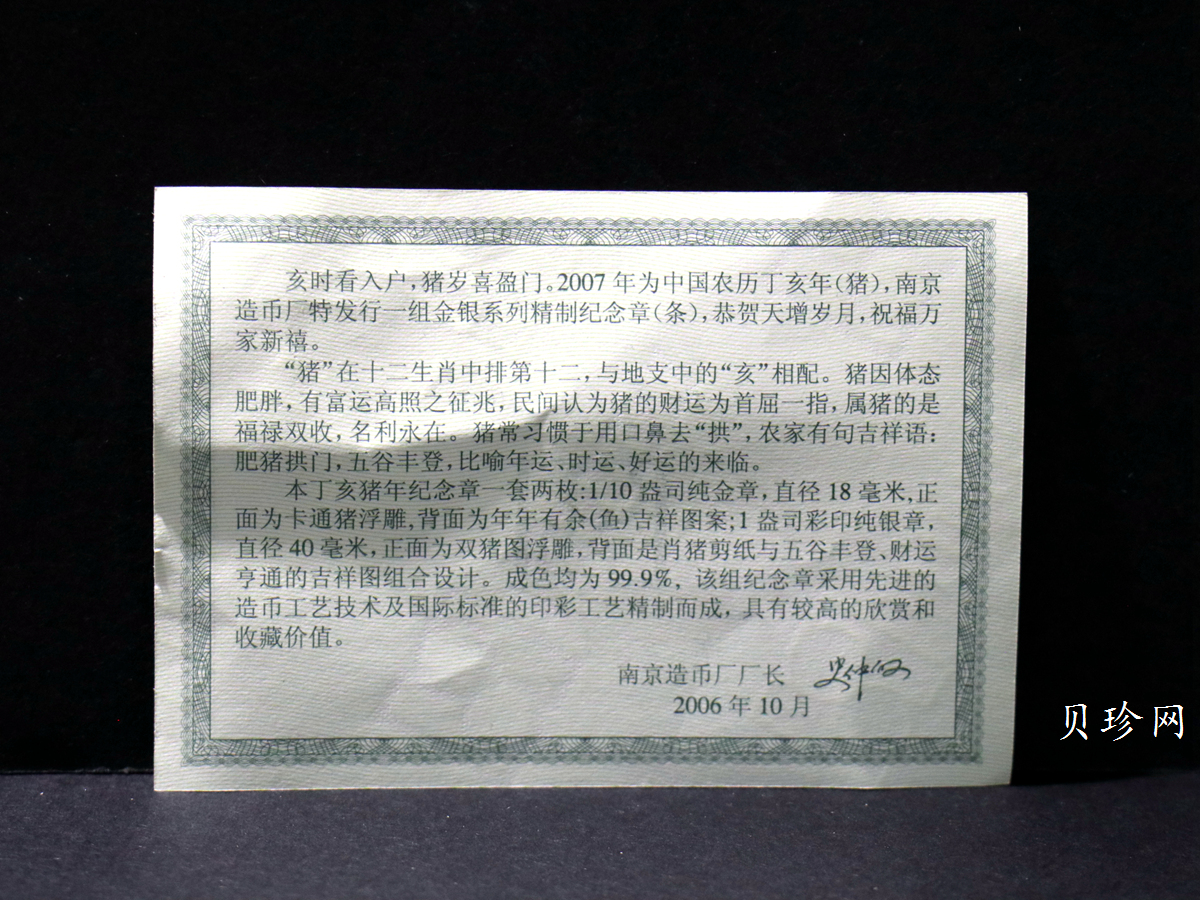 亥时看入户,猪岁喜盈门。2007 年为中国农历丁亥年(猪),南京
造币厂特发行一组金银系列精制纪念章(条),恭贺天增岁月,祝福万
家新禧。
“猪”在十二生肖中排第十二,与地支中的“亥”相配。猪因体态
肥胖,有富运高照之征兆,民间认为猪的财运为首屈一指,属猪的是
福禄双收,名利永在。猪常习惯于用口鼻去“拱”,农家有句吉祥语:
肥猪拱门,五谷丰登,比喻年运、时运、好运的来临。
本丁亥猪年纪念章一套两枚:1/10 盎司纯金章,直径 18 毫米,正
面为卡通猪浮雕,背面为年年有余(鱼)吉祥图案;1 盎司彩印纯银章,
直径 40 毫米,正面为双猪图浮雕,背面是肖猪剪纸与五谷丰登、财运
亨通的吉祥图组合设计。成色均为 99.9%,该组纪念章采用先进的
造币工艺技术及国际标准的印彩工艺精制而成,具有较高的欣赏和
收藏价值。
南京造币厂厂长
2006 年 10 月
贝珍网